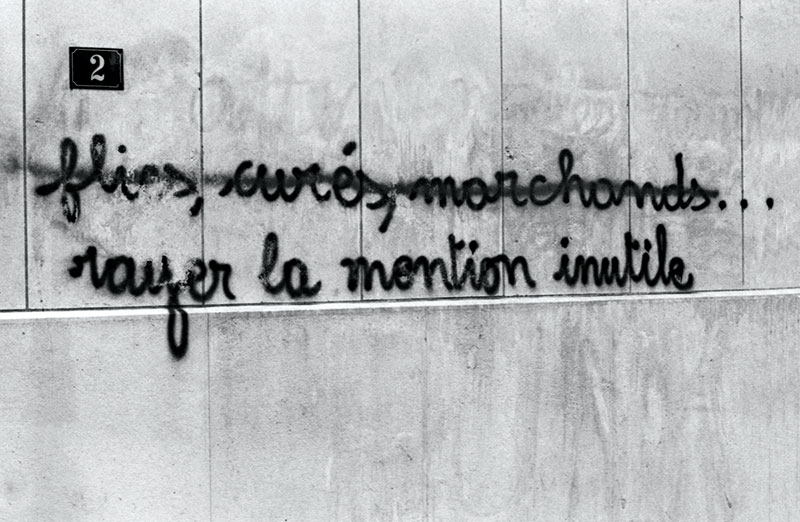 2
flics, curés, marchands...
rayer la mention inutile